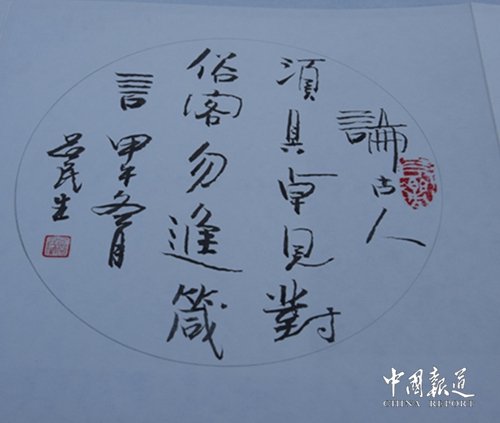 論古人
須具卓見對
俗客勿進箴
言 甲午冬月
吕民生
中国报道
CHINA REPORT